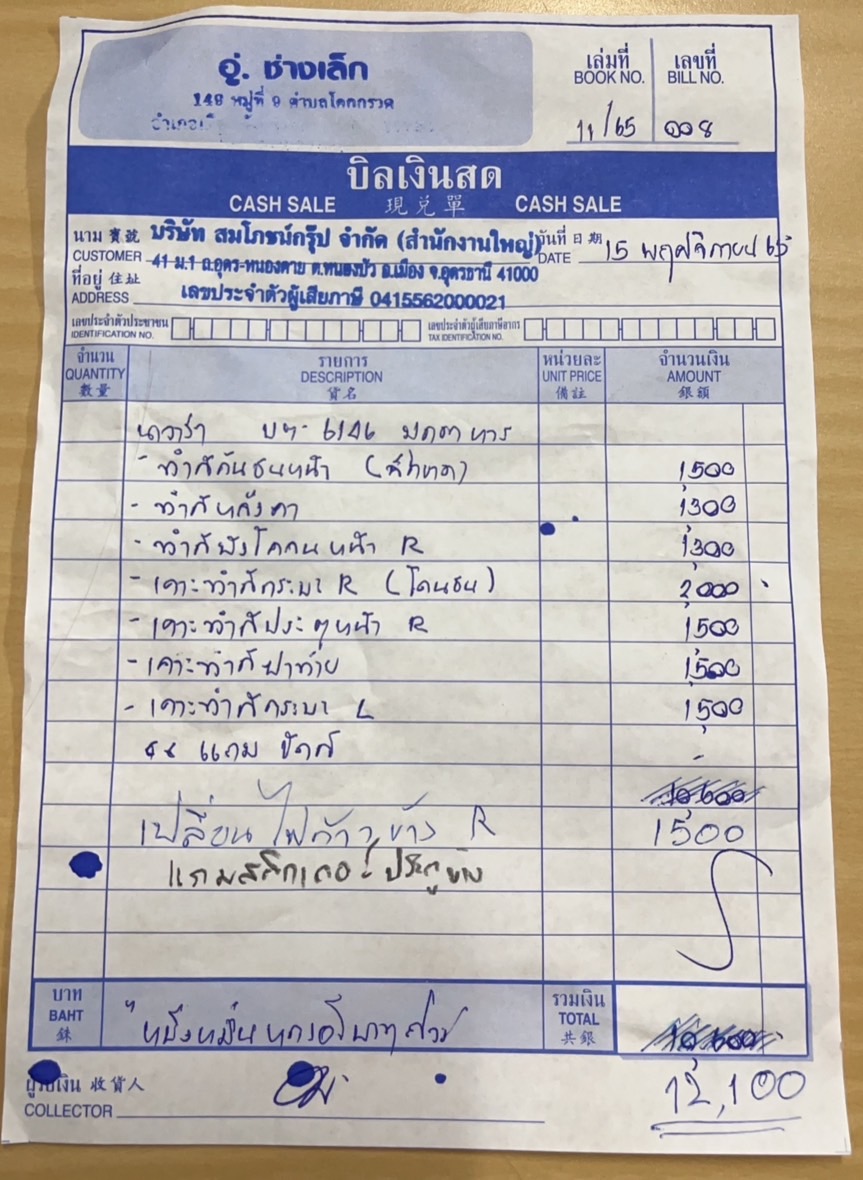 อู่. ช่างเล็ก
149 หมู่ที่ 9 ตำบลโคกกรวด
อำเภอ
เล่มที่ เลขที่
BOOK NO. BILL NO.
11/65 008
บิลเงินสด
CASH SALE 現兌單 CASH SALE
นาม 寶號 บริษัท สมโภชน์กรุ๊ป จำกัด (สำนักงานใหญ่) วันที่ 日期 15 พฤศจิกายน 65
CUSTOMER 41 ม.1 ถ.อุดร-หนองคาย ต.หนองบัว อ.เมือง จ.อุดรธานี 41000 DATE
ที่อยู่ 住址
ADDRESS เลขประจำตัวผู้เสียภาษี 0415562000021
เลขประจำตัวประชาชน เลขประจำตัวผู้เสียภาษีอากร
IDENTIFICATION NO. TAX IDENTIFICATION NO.
จำนวน รายการ หน่วยละ จำนวนเงิน
QUANTITY DESCRIPTION UNIT PRICE AMOUNT
數量 貨名 備註 銀額
นาวาร่า บฯ-6146 มุกดาหาร
- ทำสีกันชนหน้า 1500
- ทำสีหลังคา 1300
- ทำสีบังโคลนหน้า R 1300
- เคาะทำสีกระบะ R (โดนชน) 2000
- เคาะทำสีประตูหน้า R 1500
- เคาะทำสีฝาท้าย 1500
- เคาะทำสีกระบะ L 1500
แถม ขัดสี -
10600
เปลี่ยนไฟ ข้าง R 1500
แถมสติกเกอร์ ประตูข้าง
บาท รวมเงิน
BAHT TOTAL
銖 หนึ่งหมื่นหกร้อยบาทถ้วน 共銀 10600
ผู้รับเงิน 收貨人
COLLECTOR 12,100